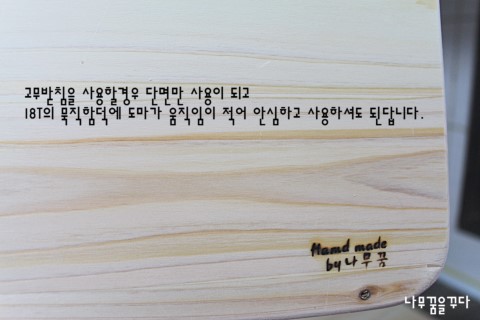 고무받침을 사용할경우 단면만 사용이 되고
18T의 묵직함덕에 도마가 움직임이 적어 안심하고 사용하셔도 된답니다.
Hand made
by 나무꿈
나무꿈을꾸다